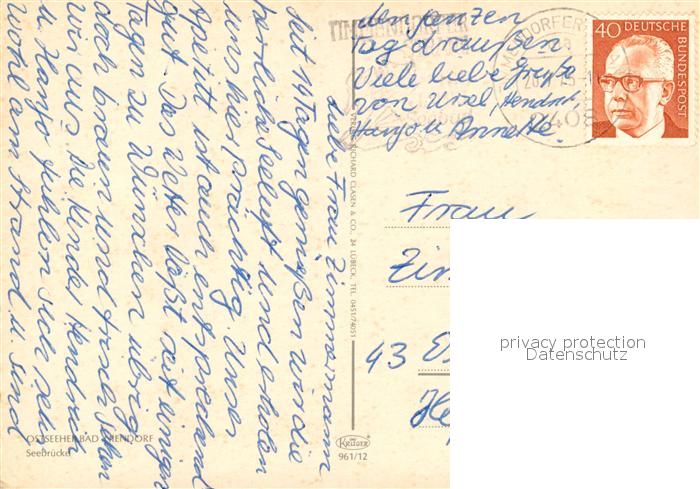 Liebe Frau Zimmermann
Seit 14 Tagen genießen wir die
herrliche Seeluft und erholen
uns hier prächtig. Unser
Appetit ist auch entsprechend
gut. Das Wetter läßt seit einigen
Tagen zu Wünschen übrig
doch braun und frisch sehen
wir aus. Die Kinder Hendrik
u. Hanjo fühlen sich sehr
wohl am Strand u. sind
den ganzen
Tag draußen
Viele liebe Grüße
von Ursel, Hendrik
Hanjo u. Annette.
TIMMENDORFER
2408
40 DEUTSCHE
BUNDESPOST
Frau
Zim
43 Es
He
privacy protection
Datenschutz
VERLAG RICHARD CLASEN & CO., 24 LÜBECK, TEL. 0451/74051
OSTSEEHEILBAD NIENDORF
Seebrücke
KRÜGER
961/12